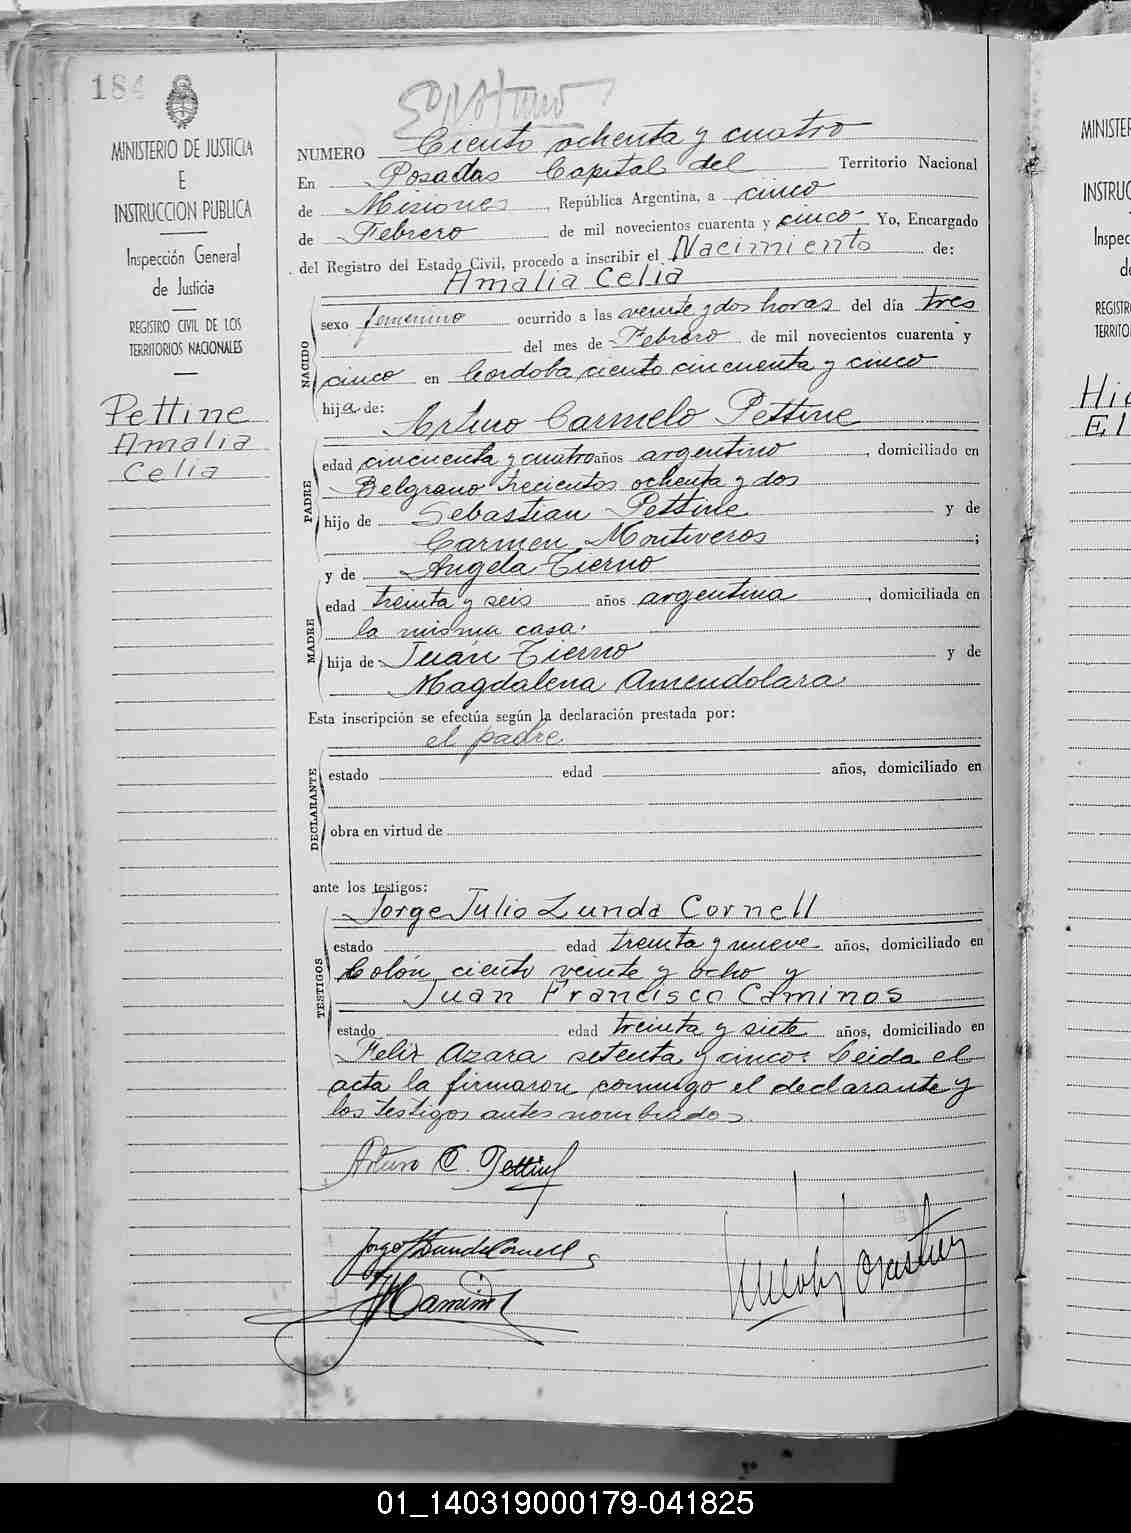 184
MINISTERIO DE JUSTICIA
E
INSTRUCCION PUBLICA
Inspección General
de Justicia
REGISTRO CIVIL DE LOS
TERRITORIOS NACIONALES
Pettine
Amalia
Celia
NUMERO Ciento ochenta y cuatro
En Posadas Capital del Territorio Nacional
de Misiones, República Argentina, a cinco
de Febrero de mil novecientos cuarenta y cinco. Yo, Encargado
del Registro del Estado Civil, procedo a inscribir el Nacimiento de:
Amalia Celia
NACIDO
sexo femenino ocurrido a las veinte y dos horas del día tres
del mes de Febrero de mil novecientos cuarenta y
cinco en Cordoba ciento cincuenta y cinco
hija de:
Arturo Carmelo Pettine
PADRE
edad cincuenta y cuatro años argentino, domiciliado en
Belgrano trecientos ochenta y dos
hijo de Sebastian Pettine y de
Carmen Montiveros;
y de Angela Tierno
MADRE
edad treinta y seis años argentina, domiciliada en
la misma casa.
hija de Juan Tierno y de
Magdalena Amendolara.
Esta inscripción se efectúa según la declaración prestada por:
el padre
DECLARANTE
estado edad años, domiciliado en
obra en virtud de
ante los testigos:
Jorge Julio Lunda Cornell
TESTIGOS
estado edad treinta y nueve años, domiciliado en
Colón ciento veinte y ocho y
Juan Francisco Caminos
estado edad treinta y siete años, domiciliado en
Felix Azara setenta y cinco. Leida el
acta la firmaron conmigo el declarante y
los testigos antes nombrados.
Arturo C. Pettine
MINISTER
INSTRUC
Inspec
de
REGISTR
TERRITO
01_140319000179-041825